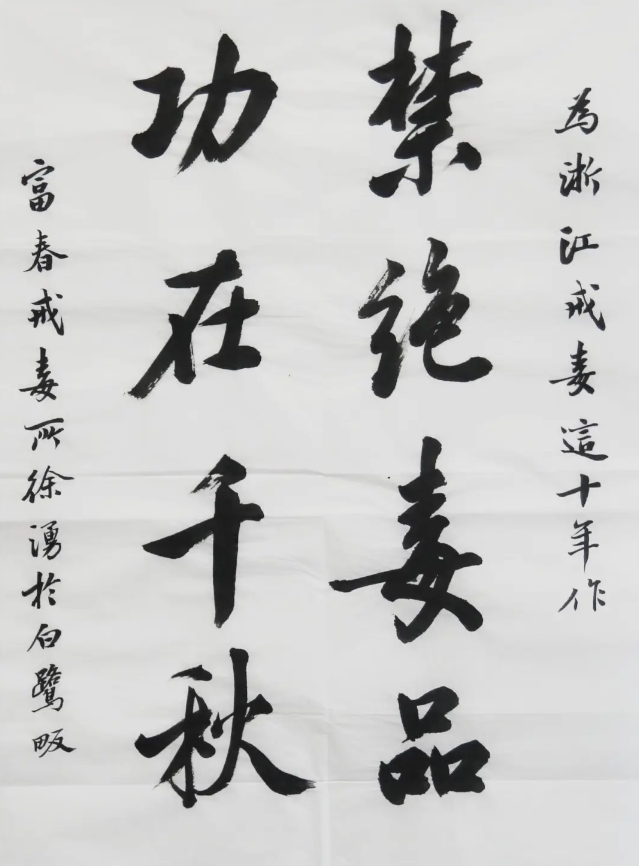 為浙江戒毒這十年作
禁绝毒品
功在千秋
富春戒毒所徐湧於白鷺畈